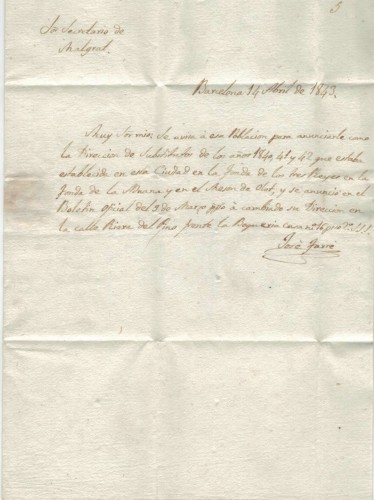 3
Sr Secretario de
Malgrat.
Barcelona 14 Abril de 1843.
Muy Sr mio: Se avisa á esa Poblacion para anunciarle como
la Direccion de Substitutos de los años 1840, 41 y 42 que estaba
establecida en esta Ciudad en la fonda de los tres Reyes en la
fonda de la Noria y en el Meson de Olot, y se anunció en el
Boletin Oficial del 3 de Marzo ppdo á cambiado su Direccion en
la calle Riera del Pino frente la Boqueria casa nº
José Farré